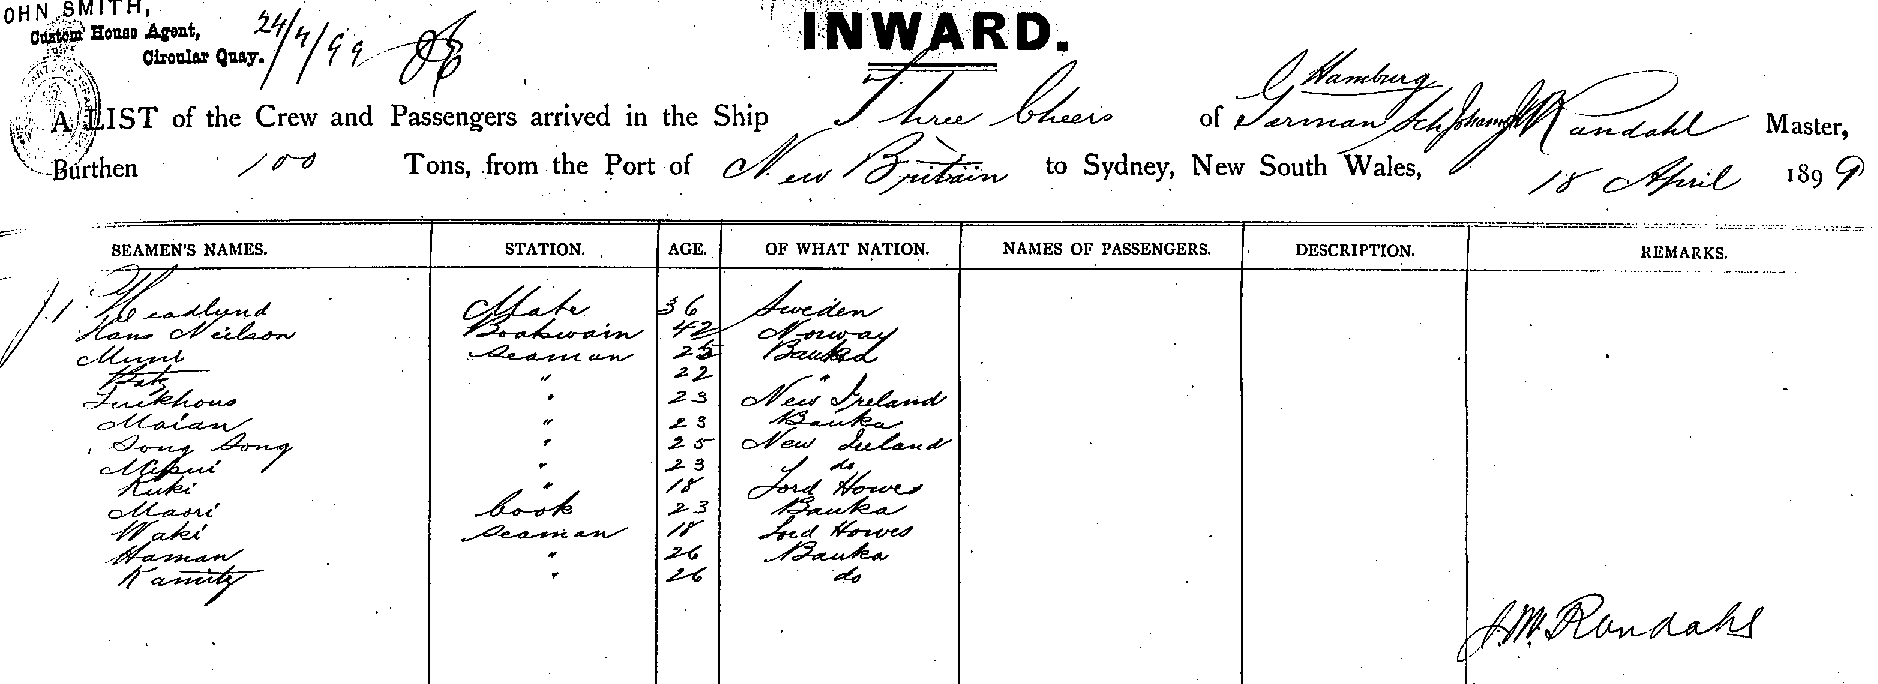 OHN SMITH,
Custom House Agent,
Circular Quay.
24/4/99
INWARD.
Hamburg
A LIST of the Crew and Passengers arrived in the Ship Three Cheers of German Sch Randahl Master,
Burthen 100 Tons, from the Port of New Britain to Sydney, New South Wales, 18 April 1899
SEAMEN'S NAMES. STATION. AGE. OF WHAT NATION. NAMES OF PASSENGERS. DESCRIPTION. REMARKS.
Headlund Mate 36 Sweden
Hans Neilson Boatswain 42 Norway
seaman 25 Bauka
" 22 "
" 23 New Ireland
Maian " 23 Bauka
Song Song " 25 New Ireland
" 23 do
Kuki " 18 Lord Howes
Maori Cook 23 Bauka
Waki seaman 18 Lord Howes
Haman " 26 Bauka
" 26 do
J.M. Randahl